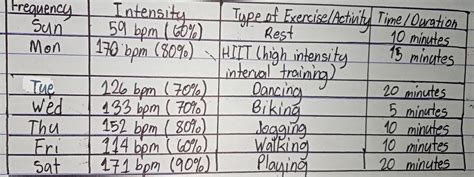 Frequency Intensity Type of Exercise/Activity Time/Duration
Sun 59 bpm (60%) Rest 10 minutes
Mon 170 bpm (80%) HIIT (high intensity 15 minutes
interval training)
Tue 126 bpm (70%) Dancing 20 minutes
Wed 133 bpm (70%) Biking 5 minutes
Thu 152 bpm (80%) Jogging 10 minutes
Fri 114 bpm (60%) Walking 10 minutes
Sat 171 bpm (90%) Playing 20 minutes